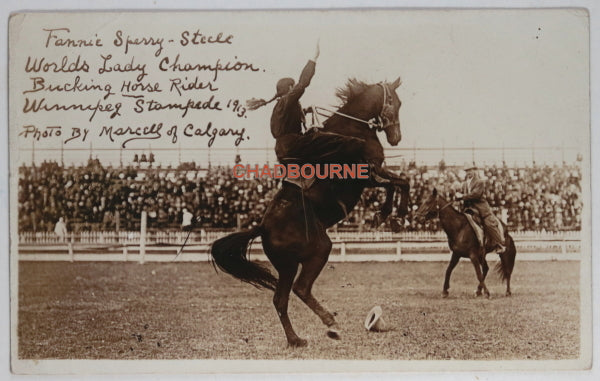 Fannie Sperry-Steele
Worlds Lady Champion.
Bucking Horse Rider
Winnipeg Stampede 1913.
Photo By Marcell of Calgary.
CHADBOURNE